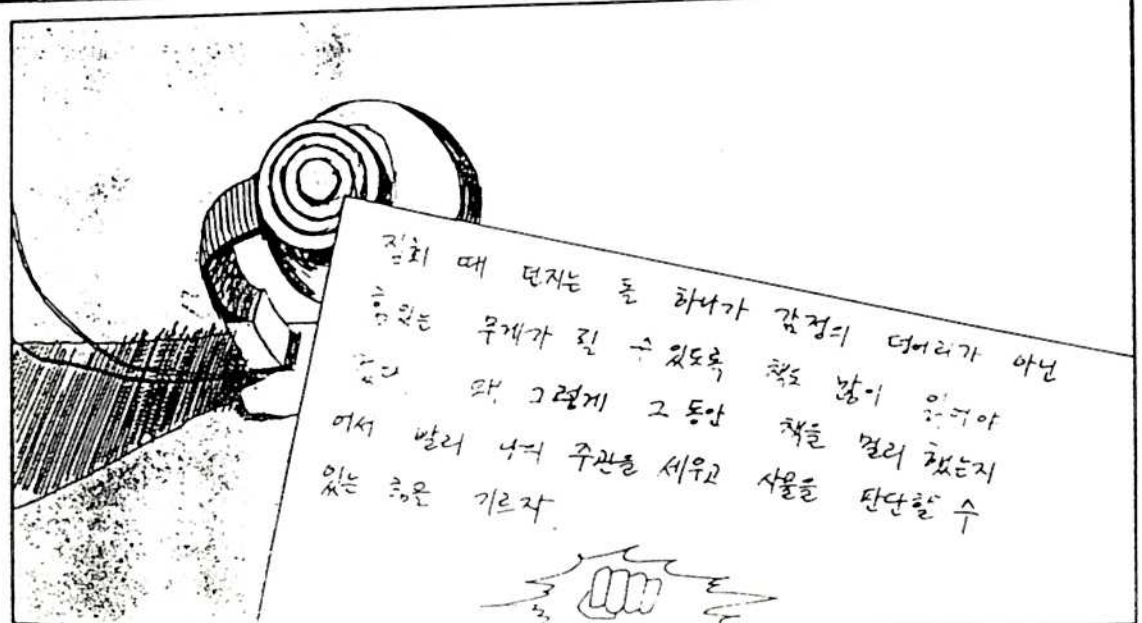 집회 때 던지는 돌 하나가 감정의 덩어리가 아닌
힘있는 무게가 될 수 있도록 책도 많이 읽어야
겠다. 왜 그렇게 그동안 책을 멀리 했는지
어서 빨리 나의 주관을 세우고 사물을 판단할 수
있는 힘을 기르자